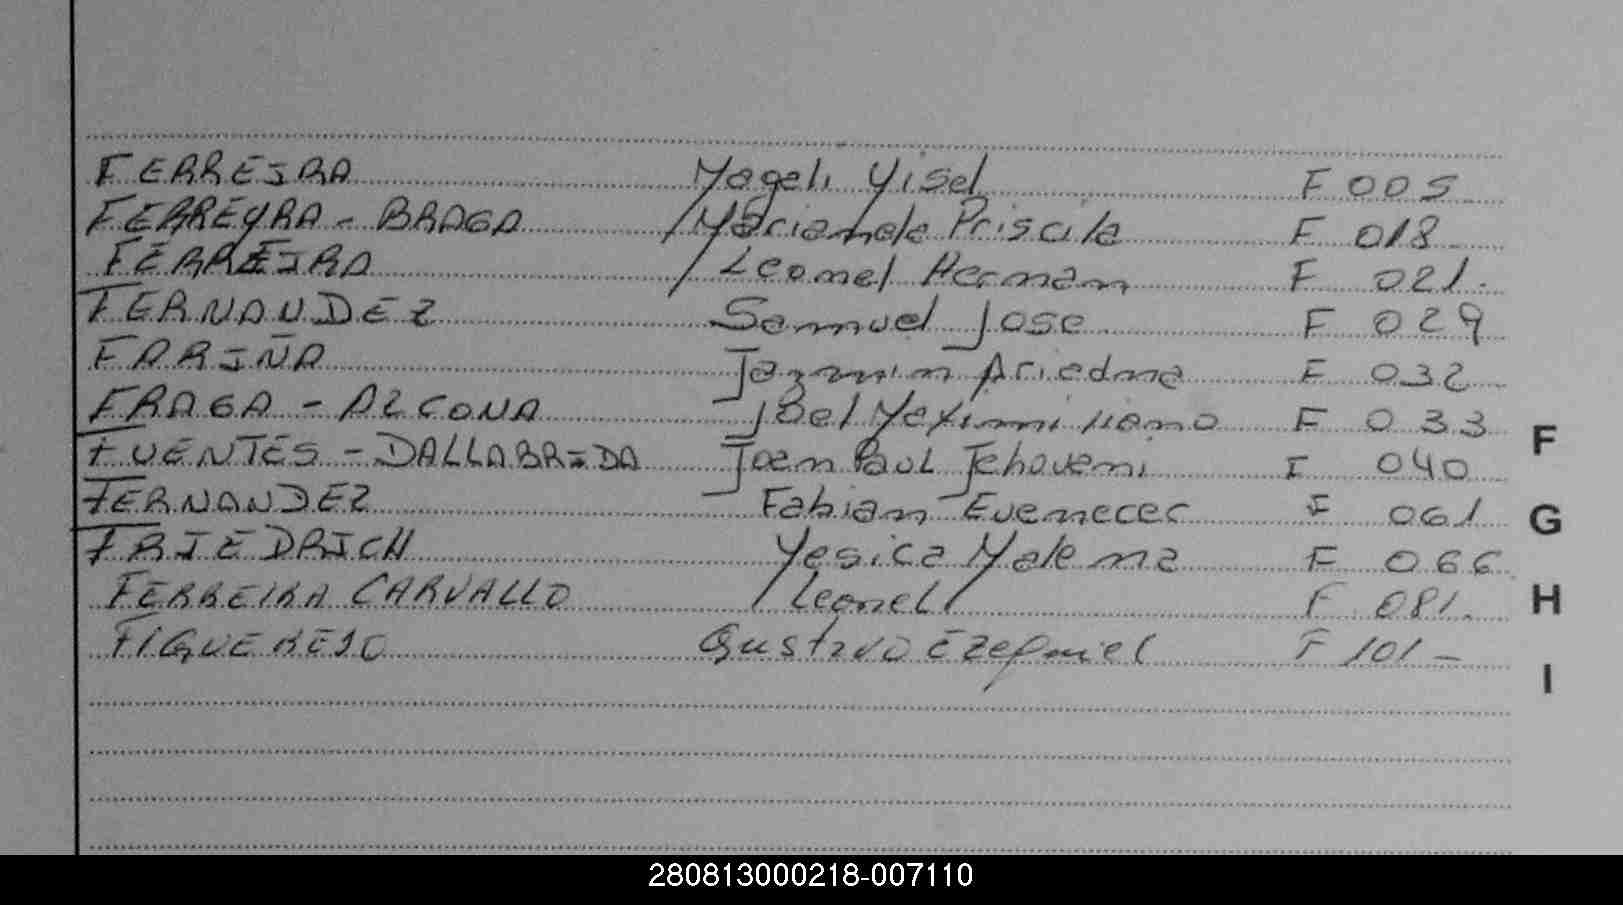 FERREIRA Mageli Yisel F 005
FERREYRA - BRAGA Marianela Priscila F 018
FERREIRA Leonel Hernan F 021.
FERNANDEZ Samuel Jose F 029
FARIÑA Jazmin Ariedna F 032
FRAGA - AZCONA Joel Maximiliano F 033
FUENTES - DALLABRIDA Joan Paul Jehovani F 040
FERNANDEZ Fabian Evenecer F 061
FRIEDRICH Yesica Malena F 066
FERREIRA CARVALLO Leonel F 081.
FIGUEREJO Gustavo Ezequiel F 101 -
F
G
H
I
280813000218-007110